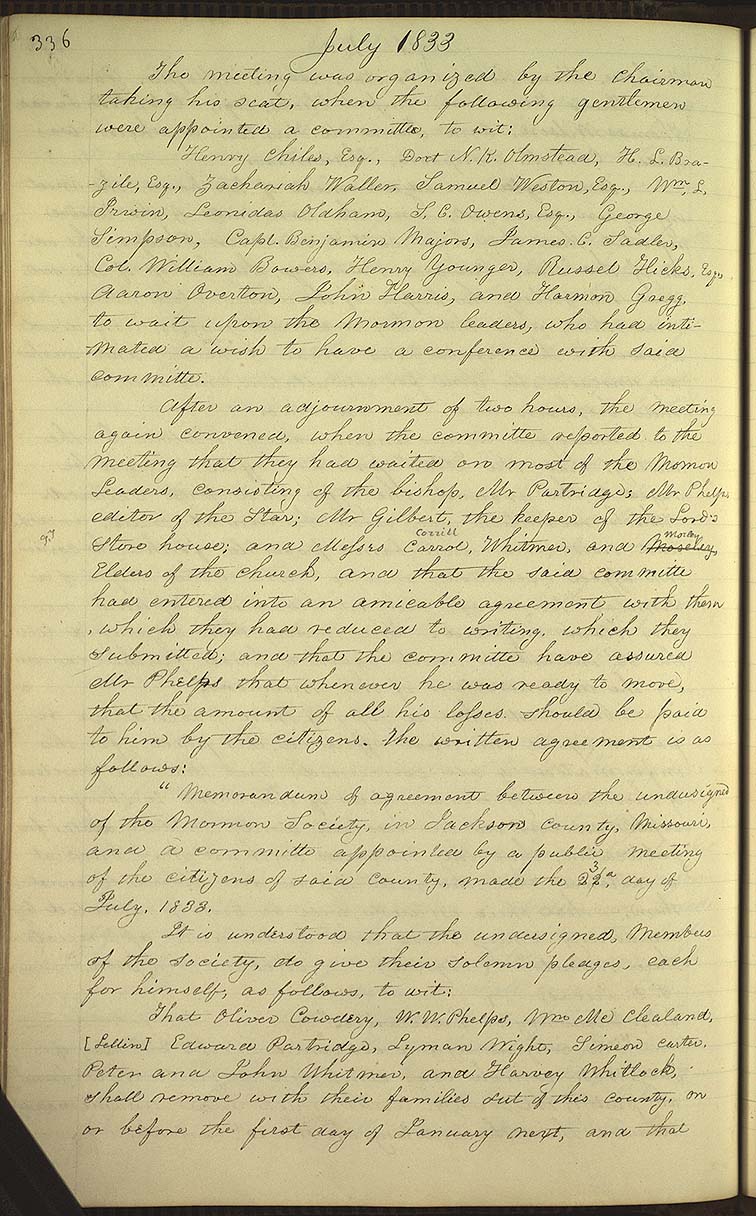 336
July 1833
The meeting was organized by the chairman
taking his seat, when the following gentlemen
were appointed a committe, to wit:
Henry Chiles, Esq., Doct N. K. Olmstead, H. L. Bra-
-zile, Esq., Zachariah Waller, Samuel Weston, Esq., Wm. L.
Irwin, Leonidas Oldham, S. C. Owens, Esq., George
Simpson, Capt. Benjamin Majors, James. C. Sadler,
Col. William Bowers, Henry Younger, Russel Hicks, Esq.
Aaron Overton, John Harris, and Harmon Gregg,
to wait upon the Mormon leaders, who had inti-
mated a wish to have a conference with said
committe.
After an adjournment of two hours, the meeting
again convened, when the committe reported to the
meeting that they had waited on most of the Momon
Leaders, consisting of the bishop, Mr Partridge; Mr Phelps
editor of the Star; Mr Gilbert, the keeper of the Lord's
Corrill Morley
Store house; and Messrs Carrol, Whitmer, and Moseley,
Elders of the church, and that the said committe
had entered into an amicable agreement with them
, which they had reduced to writing, which they
submitted; and that the committe have assured
Mr Phelps that whenever he was ready to move,
that the amount of all his losses should be paid
to him by the citizens. The written agreement is as
follows:
"Memorandum of agreement between the undersigned
of the Mormon Society, in Jackson county, Missouri,
and a committe appointed by a public meeting
of the citizens of said county, made the 23d. day of
July, 1833.
It is understood that the undersigned, Members
of the society, do give their solemn pledges, each
for himself, as follows, to wit:
That Oliver Cowdery, W. W. Phelps, Wm Mc Clealand,
[Lellin] Edward Partridge, Lyman Wight, Simeon Carter,
Peter and John Whitmer, and Harvey Whitlock,
shall remove with their families out of this county, on
or before the first day of January next, and that